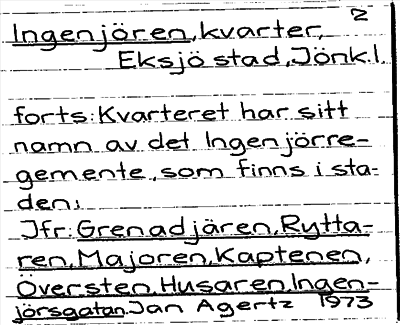 2
Ingenjören, kvarter,
Eksjö stad, Jönk.l.
forts: Kvarteret har sitt
namn av det Ingenjörre-
gemente, som finns i sta-
den.
Jfr: Grenadjären, Rytta-
ren, Majoren, Kaptenen,
Översten, Husaren, Ingen-
jörsgatan. Jan Agertz 1973